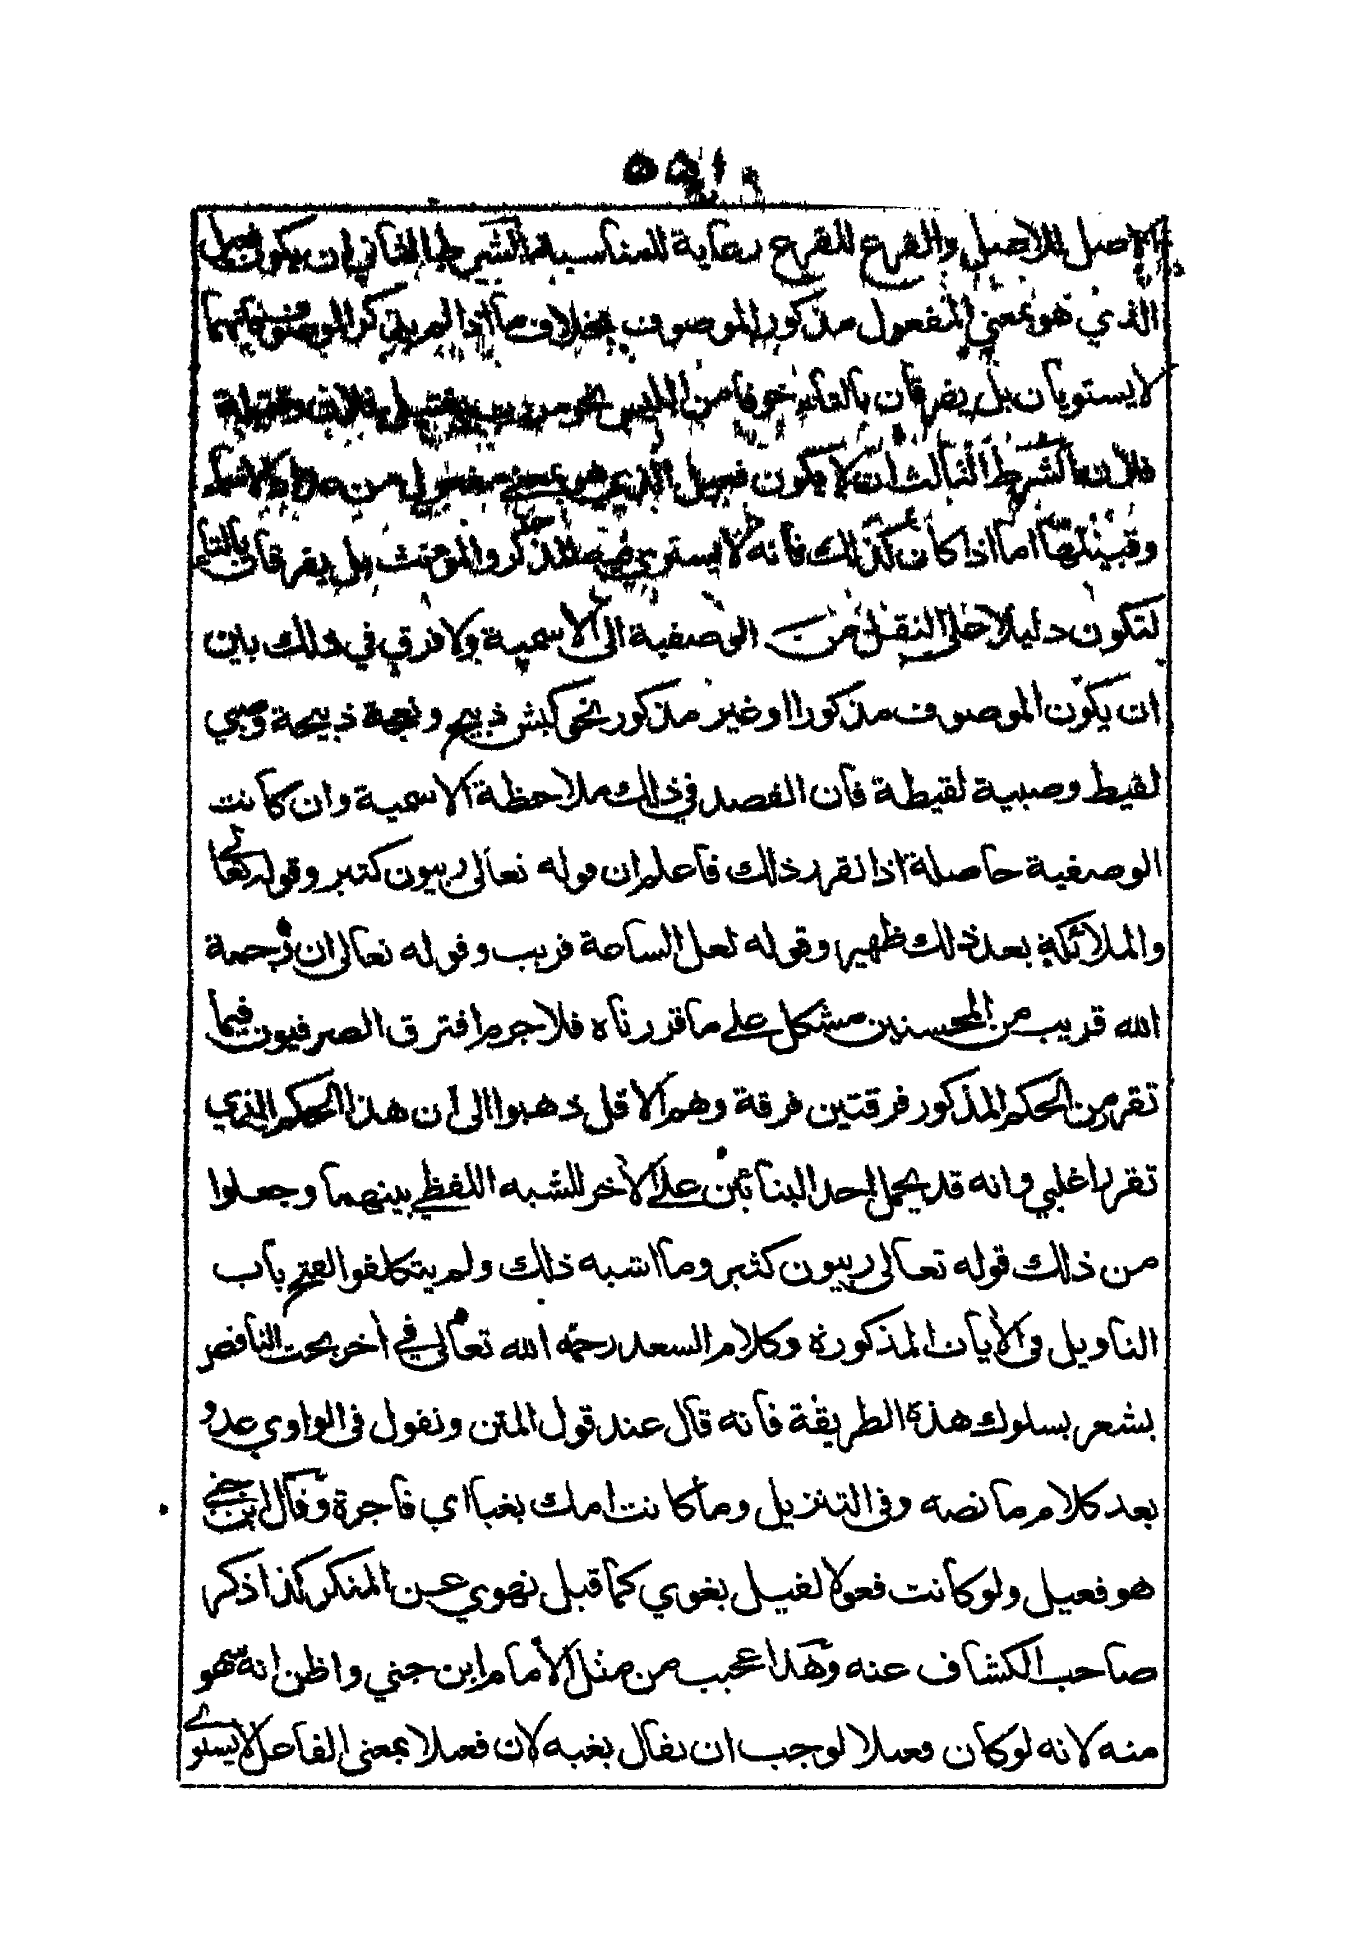 الاصل للاصل والفرع للفرع رعاية للمناسبة الشرط الثاني ان يكون فعيل
الذي هو بمعنى المفعول مذكور الموصوف بخلاف ما اذا لم يذكر الموصوف فانهما
لا يستويان بل يفرقان بالتاء خوفا من اللبس نحو مررت بقتيل فلان وقتيلة
فلان الشرط الثالث ان لا يكون فعيل الذي هو بمعنى مفعول من
وقبيلتها اما اذا كان كذلك فانه لا يستوي فيه المذكر والمؤنث بل يفرقان بالتاء
لتكون دليلا على النقل من الوصفية الى الاسمية ولا فرق في ذلك بين
ان يكون الموصوف مذكورا او غير مذكور نحو كبش ذبيح ونعجة ذبيحة وصبي
لقيط وصبية لقيطة فان القصد في ذلك ملاحظة الاسمية وان كانت
الوصفية حاصلة اذا تقرر ذلك فاعلم ان قوله تعالى ربيون كثير وقوله تعالى
والملائكة بعد ذلك ظهير وقوله لعل الساعة قريب وقوله تعالى ان رحمة
الله قريب من المحسنين مشكل على ما قررناه فلا جرم افترق الصرفيون فيما
تقرر من الحكم المذكور فرقتين فرقة وهم الاقل ذهبوا الى ان هذا الحكم الذي
تقرر اغلبي وانه قد يحمل احد البنائين على الاخر للشبه اللفظي بينهما وجعلوا
من ذلك قوله تعالى ربيون كثير وما اشبه ذلك ولم يتكلفوا الفتح باب
التاويل في الايات المذكورة وكلام السعد رحمه الله تعالى في اخر بحث الناقص
يشعر بسلوك هذه الطريقة فانه قال عند قول المتن وتقول في الواوي عدو
بعد كلام ما نصه وفي التنزيل وما كانت امك بغيا اي فاجرة وقال ابن جني
هو فعيل ولو كانت فعولا لقيل بغوي كما قبل نهوي عن المنكر كذا ذكر
صاحب الكشاف عنه وهذا عجيب من مثل الامام ابن جني واظن انه سهو
منه لانه لو كان فعيلا لوجب ان يقال بغية لان فعيلا بمعنى الفاعل لا يستوي